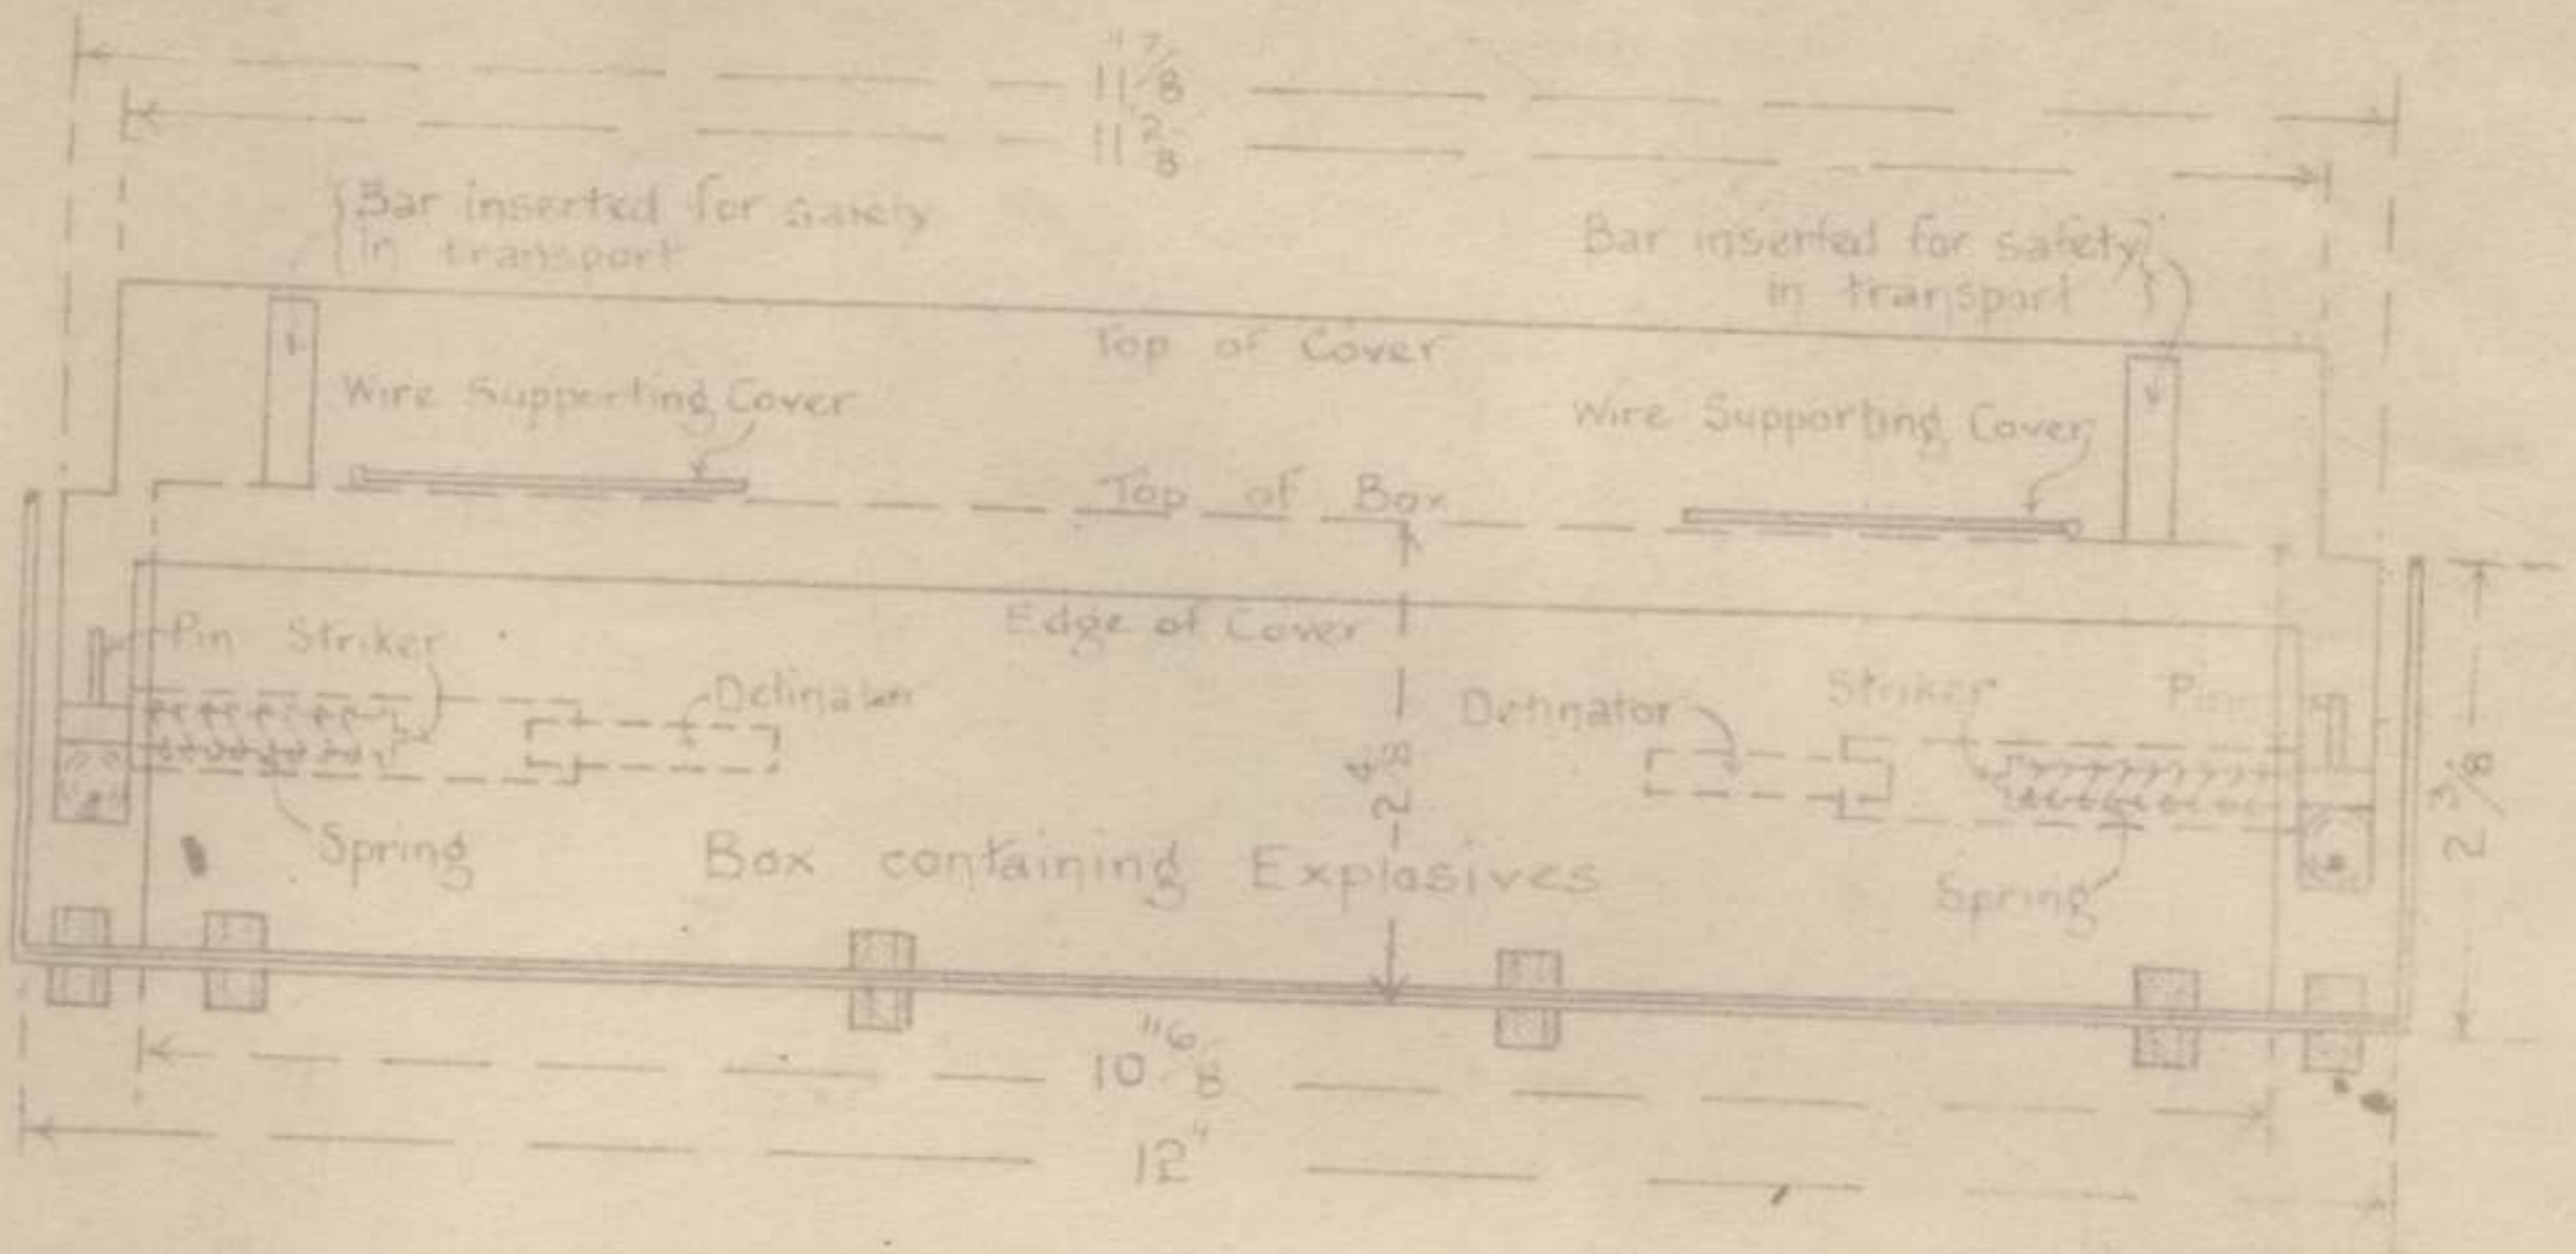 11 7/8"
11 2/8"
Bar inserted for safety
in transport
Bar inserted for safety
in transport
Top of Cover
Wire Supporting Cover
Wire Supporting Cover
Top of Box
Edge of Cover
Pin Striker
Detinator
Detinator
Striker
Pin
2 4/8
2 3/8
Spring
Box containing Explosives
Spring
10 6/8"
12"